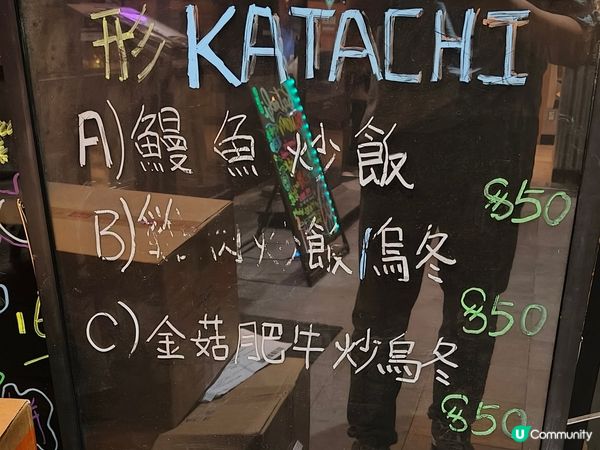 形 KATACHI
A)鰻魚炒飯
$50
B) 炒飯/烏冬
$50
C)金菇肥牛炒烏冬
$50
U Community